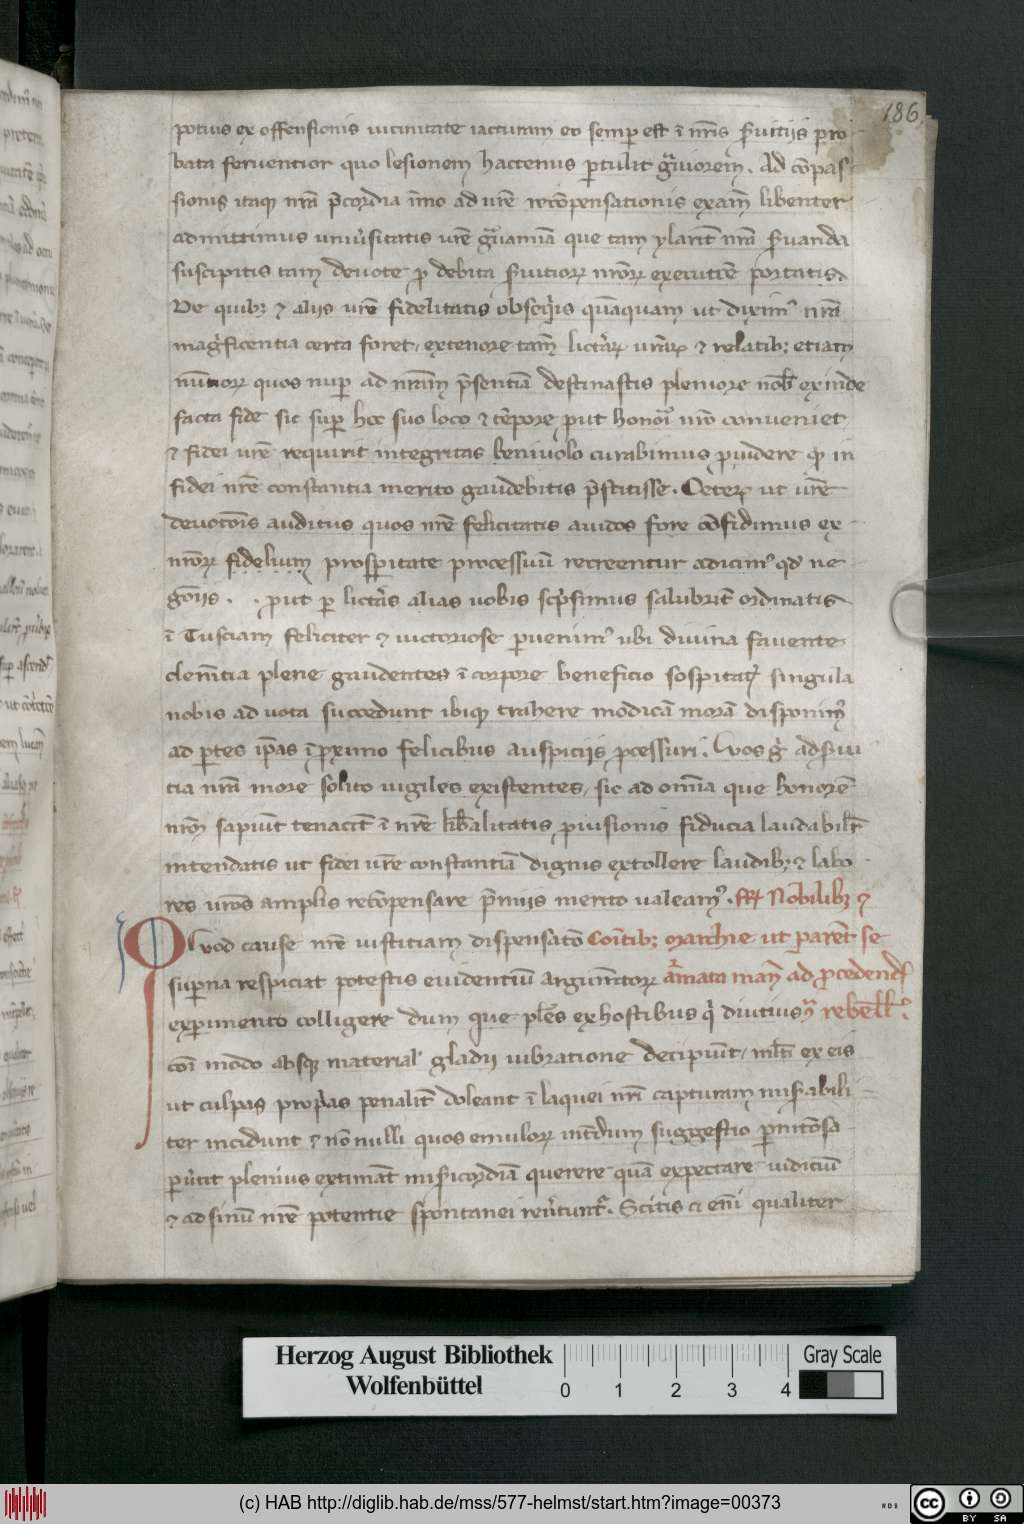 186
potius ex offensionis uicinitate iacturam eo semp est ĩ nr̃is s̃uitijs pro
bata feruentior quo lesionem hactenus ptulit g̃uiorem. Ad cõpas
sionis itaq nr̃a p̃cordia ĩmo ad ur̃e recõpensationis exam̃ libenter
admittimus uniu͛sitatis ur̃e g̃uamĩa que tam ylarit̃ nr̃a s̃uanda
suscipitis tam deuote p debita s̃uitiorꝝ nr̃orꝝ executiõe portatis.
De quibꝫ ⁊ aliis ur̃e fidelitatis obseq̃is quãquam ut diximꝰ nr̃a
mag̃ficentia certa foret, ex tenore tam̃ licterarꝝ ur̃arꝝ ⁊ relatibꝫ etiam
nũtiorꝝ quos nup ad nr̃am p̃sentiã destinastis pleniore nob̃ exinde
facta fide sic sup hoc suo loco ⁊ tẽpore put honori nr̃o conueniet
⁊ fidei ur̃e requirit integritas beniuolo curabimus puidere qꝫ in
fidei nr̃e constantia merito gaudebitis p̃stitisse. Ceterꝝ ut ur̃e
deuotõis auditus quos nr̃e felicitatis auidos fore cõfidimus ex
nr̃orꝝ fidelium prosperitate processuũ recreentur adicimꝰ qd̃ ne
gõiis . . put p licteras alias uobis sc̃psimus salubrit̃ ordinatis
ĩ Tusciam feliciter ⁊ uictoriose puenimꝰ ubi diuina fauente
clemẽtia plene gaudentes ĩ corpore beneficio sospitatꝭ singula
nobis ad uota succedunt ibiqꝫ trahere modicã morã disponimꝰ
ad ptes ip̃as ĩ pximo felicibus auspicijs pcessuri. Uos g̃ ad s̃ui
tia nr̃a more solito uigiles existentes, sic ad om̃ia que honorẽ
nr̃m sapiũt tenacit̃ ĩ nr̃e lib̃alitatis puisionis fiducia laudabilr̃
intendatis ut fidei ur̃e constantiã dignis extollere laudibꝫ ⁊ labo
res ur̃os amplis recõpensare p̃miis merito ualeamꝰ. Nobilibꝫ ⁊
Quod cause nr̃e iustitiam dispensatõ Comitibꝫ marchie ut parent se
supna respiciat potestis euidentiũ argumẽtorꝝ armata man̄ ad pcedendũ
experimento colligere dum que pl̃es ex hostibus q̃ diutius rebell.
cõi modo absqꝫ material' gladij uibratione decipiũt, ml̃ti ex eis
ut culpas prop̃as penalit̃ doleant ĩ laquei nr̃i capturam mis̃abili
ter incidunt ⁊ nõ nulli quos emulorꝝ int̃dum suggestio pnitõsa
pu͛tit plenius extimãt mis̃icordiã querere quã expectare iudiciũ
⁊ ad sinũ nr̃e potentie spontanei reu͛tunt̃. Scitis ei eñi qualiter
Herzog August Bibliothek
Wolfenbüttel
0 1 2 3 4
Gray Scale
(c) HAB http://diglib.hab.de/mss/577-helmst/start.htm?image=00373
WDB
cc BY SA